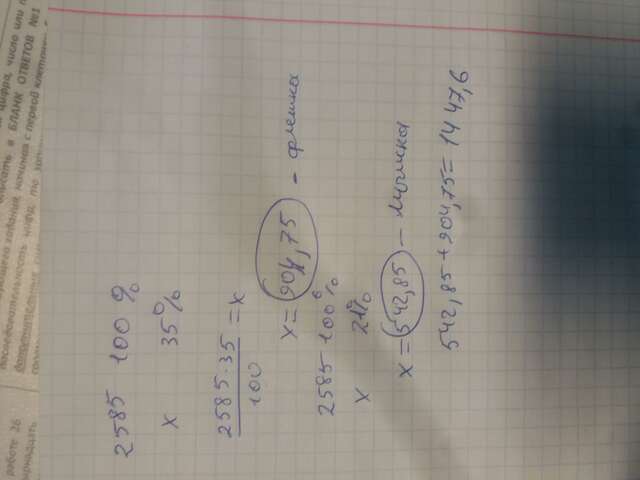 2585 100%
х 35%
2585·35
100
=х
х=904,75 - флешка
2585 100%
х 21%
х=542,85 - мышка
542,85+904,75=1447,6
цифра, число или
в БЛАНК ОТВЕТОВ №1
задания, начиная с первой клеточки
последовательность цифр, то
работе 26